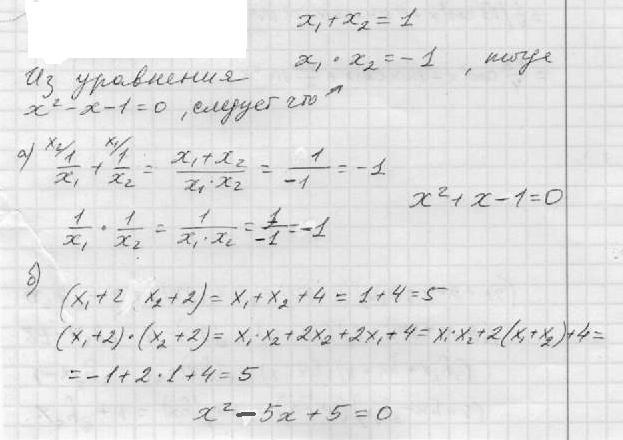 x₁ + x₂ = 1
x₁ · x₂ = -1 , тогда
Из уравнения
x² - x - 1 = 0 , следует что ↗
а) ˣ²/ 1/x₁ + ˣ¹/ 1/x₂ = (x₁ + x₂)/(x₁ · x₂) = 1/-1 = -1
x² + x - 1 = 0
1/x₁ · 1/x₂ = 1/(x₁ · x₂) = 1/-1 = -1
б)
(x₁ + 2 x₂ + 2) = x₁ + x₂ + 4 = 1 + 4 = 5
(x₁ + 2) · (x₂ + 2) = x₁ · x₂ + 2x₂ + 2x₁ + 4 = x₁ · x₂ + 2(x₁ + x₂) + 4 =
= -1 + 2 · 1 + 4 = 5
x² - 5x + 5 = 0